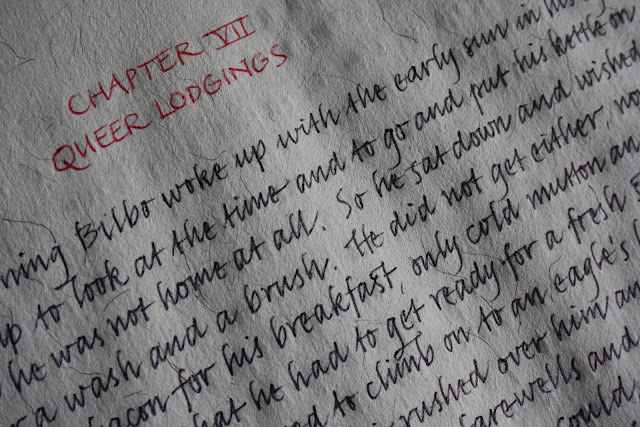 CHAPTER VII
QUEER LODGINGS
ning Bilbo woke up with the early sun in his
up to look at the time and to go and put his kettle on
he was not home at all. So he sat down and wished
a wash and a brush. He did not get either, no
bacon for his breakfast, only cold mutton an
hat he had to get ready for a fresh
ed to climb on to an eagle's
rushed over him an
farewells and
could